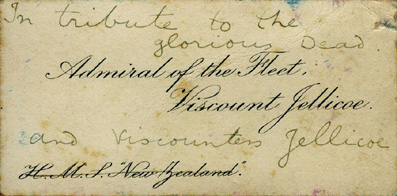 In tribute to the
glorious Dead.
Admiral of the Fleet,
Viscount Jellicoe.
and Viscountess Jellicoe
H.M.S. "New Zealand".